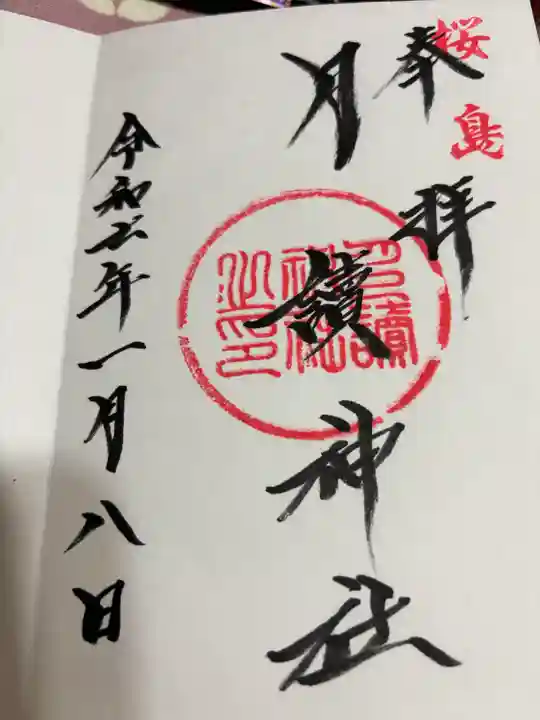 桜島
奉拝
月讀神社
月讀
神社
之印
令和 年一月八日